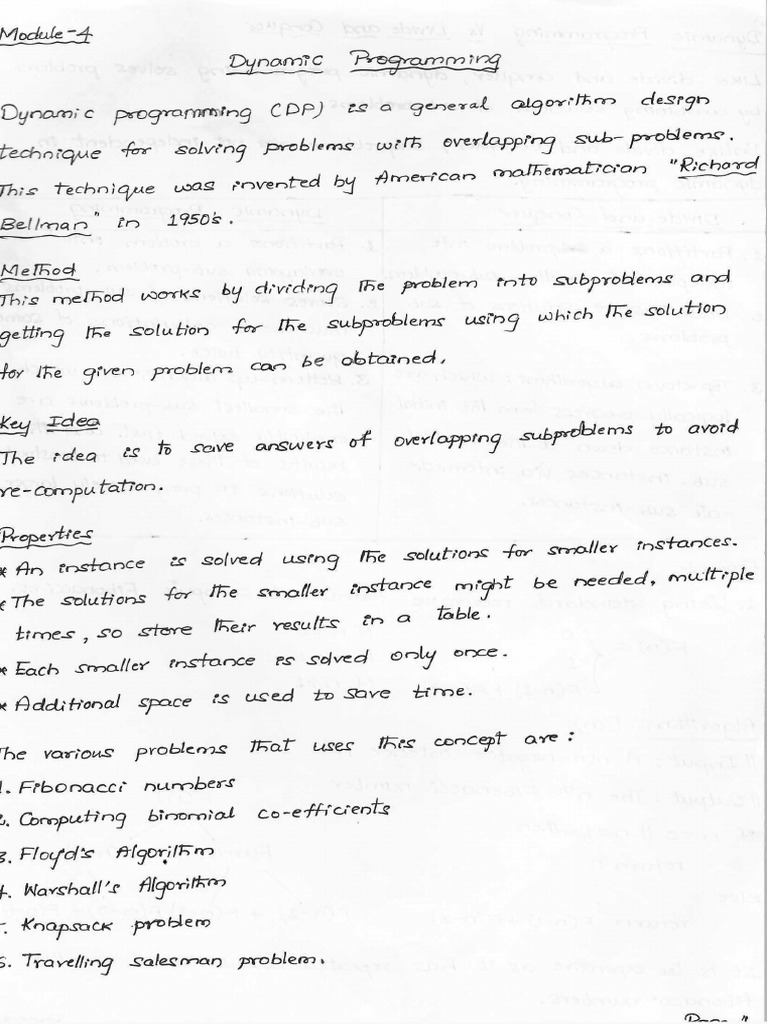 Module-4
Dynamic Programming
Dynamic programming (DP) is a general algorithm design
technique for solving problems with overlapping sub-problems.
This technique was invented by American mathematician "Richard
Bellman" in 1950's.
Method
This method works by dividing the problem into subproblems and
getting the solution for the subproblems using which the solution
for the given problem can be obtained.
Key Idea
The idea is to save answers of overlapping subproblems to avoid
re-computation.
Properties
* An instance is solved using the solutions for smaller instances.
* The solutions for the smaller instance might be needed, multiple
times, so store their results in a table.
* Each smaller instance is solved only once.
* Additional space is used to save time.
The various problems that uses this concept are:
1. Fibonacci numbers
2. Computing binomial co-efficients
3. Floyd's Algorithm
4. Warshall's Algorithm
5. Knapsack problem
6. Travelling salesman problem.